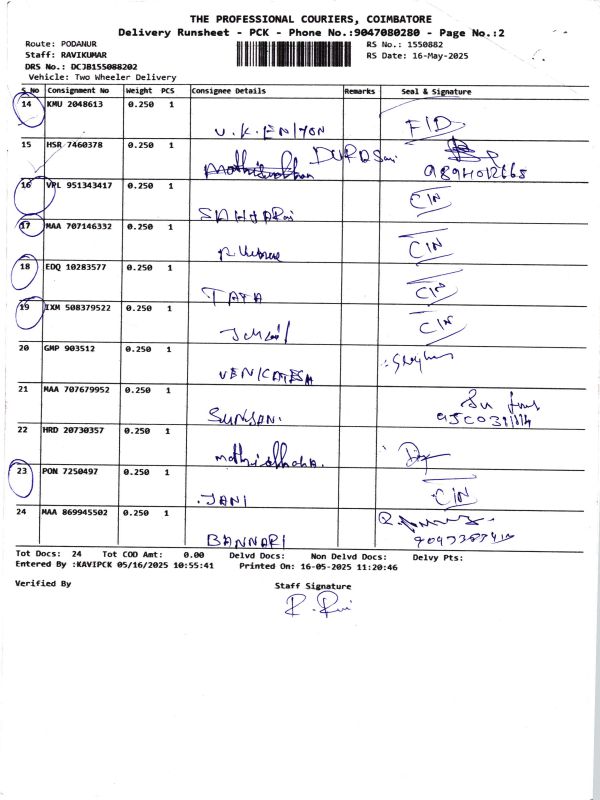 THE PROFESSIONAL COURIERS, COIMBATORE
Delivery Runsheet - PCK - Phone No.:9047080280 - Page No.:2
Route: PODANUR RS No.: 1550882
Staff: RAVIKUMAR RS Date: 16-May-2025
DRS No.: DCJB155088202
Vehicle: Two Wheeler Delivery
S No Consignment No Weight PCS Consignee Details Remarks Seal & Signature
14 KMU 2048613 0.250 1
V.K.ENIYON F/D
15 HSR 7460378 0.250 1
16 VPL 951343417 0.250 1
CIN
17 MAA 707146332 0.250 1
CIN
18 EDQ 10283577 0.250 1
TATA CIN
19 IXM 508379522 0.250 1
CIN
20 GMP 903512 0.250 1
21 MAA 707679952 0.250 1
22 HRD 20730357 0.250 1
23 PON 7250497 0.250 1
JANI CIN
24 MAA 869945502 0.250 1
BANNARI
Tot Docs: 24 Tot COD Amt: 0.00 Delvd Docs: Non Delvd Docs: Delvy Pts:
Entered By :KAVIPCK 05/16/2025 10:55:41 Printed On: 16-05-2025 11:20:46
Verified By Staff Signature